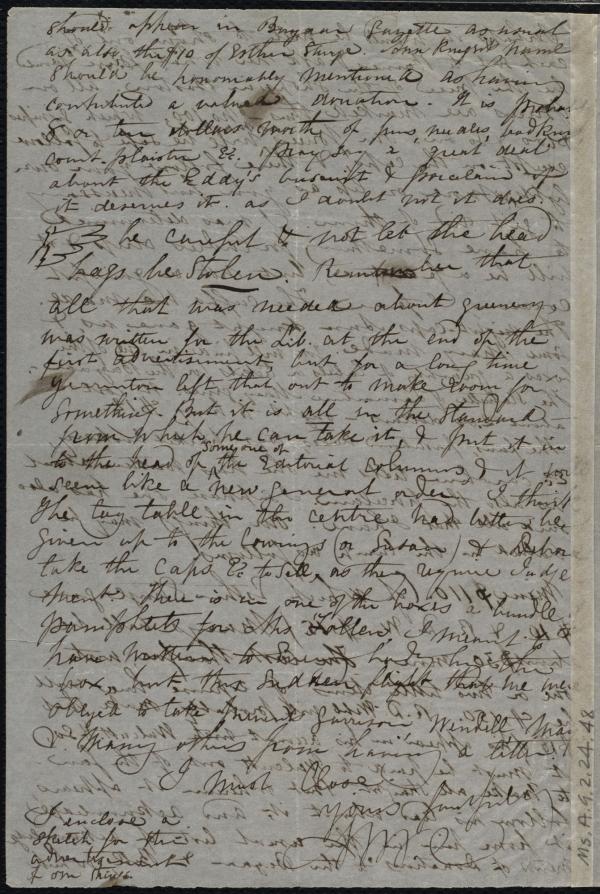 should appear in Bazaar Gazette as usual
as also the $10 of Esther Sturge. John Knight's name
should be honorably mentioned as having
contributed a valued donation. It is
8 or ten dollars worth of pins, needles,
court plaister &c. May say a great deal
about the Eddy's & Porcelain if
it deserves it. as I doubt not it does.
be careful & not let the head
bags be Stolen. Remember that
all that was needed about greenery
was written for the Lib. at the end of the
first advertisement, but for a long time
left that out to make room for
something. But it is all in the Standard
from which he can take it, & put it in
to the head of some one of the Editorial columns & it
seem like a new general order. I think
the toy table in the centre had better be
given up to the Cowings (or Susan) &
take the Caps &c to sell, as they require Judge
ment. There is in one of the boxes a bundle
pamphlets for Mrs Follen. I meant to
have written to
box, but this sudden light that we were
obliged to take prevents Garrison, Wendell, May
& Many others from having a letter.
I must close
Yours faithfully
M W C
I enclose a
sketch for the
advertisement
of our
Ms. A. 9. 2. 24. 48